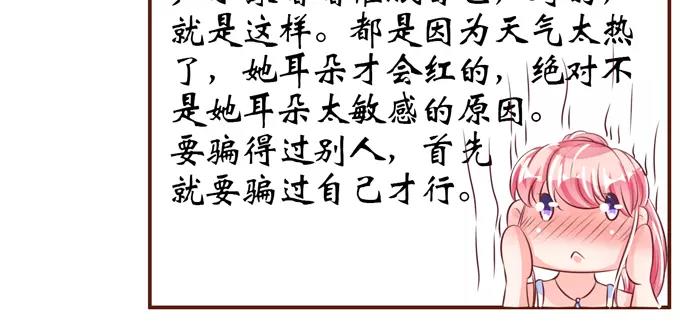 就是这样。都是因为天气太热
了，她耳朵才会红的，绝对不
是她耳朵太敏感的原因。
要骗得过别人，首先
就要骗过自己才行。